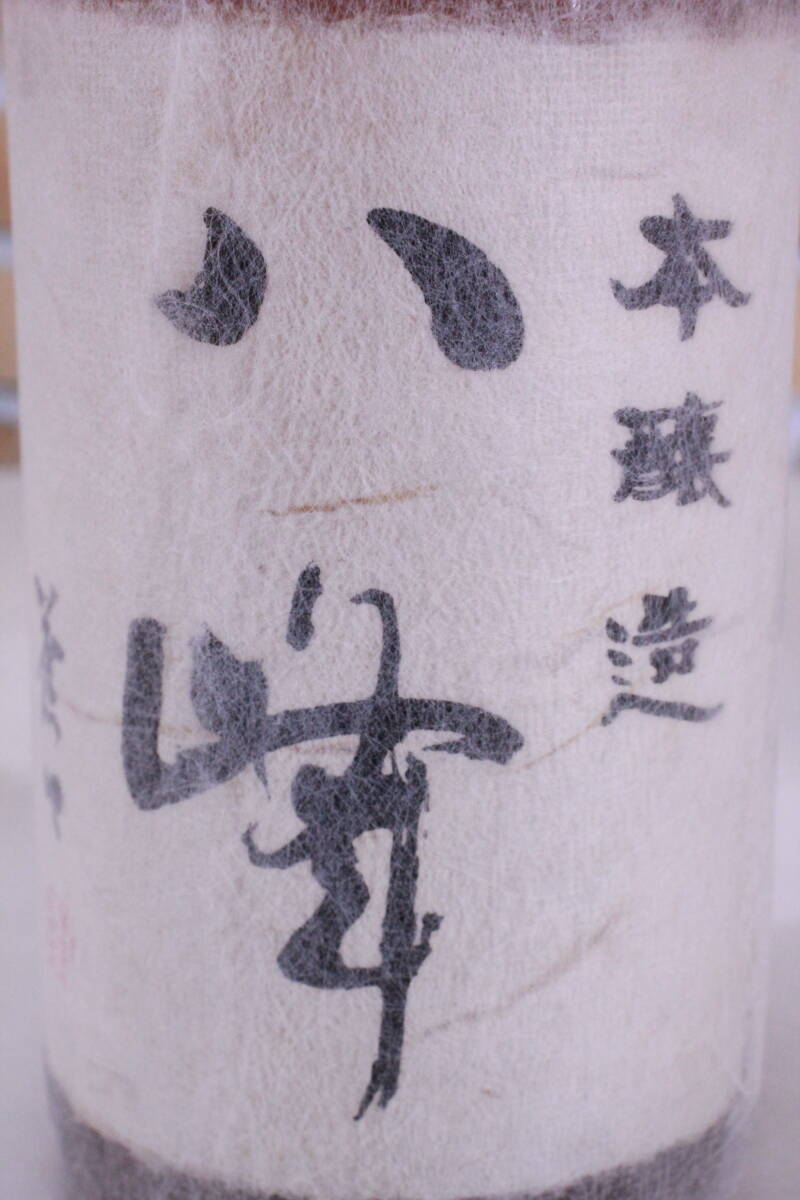 本醸造
八峰